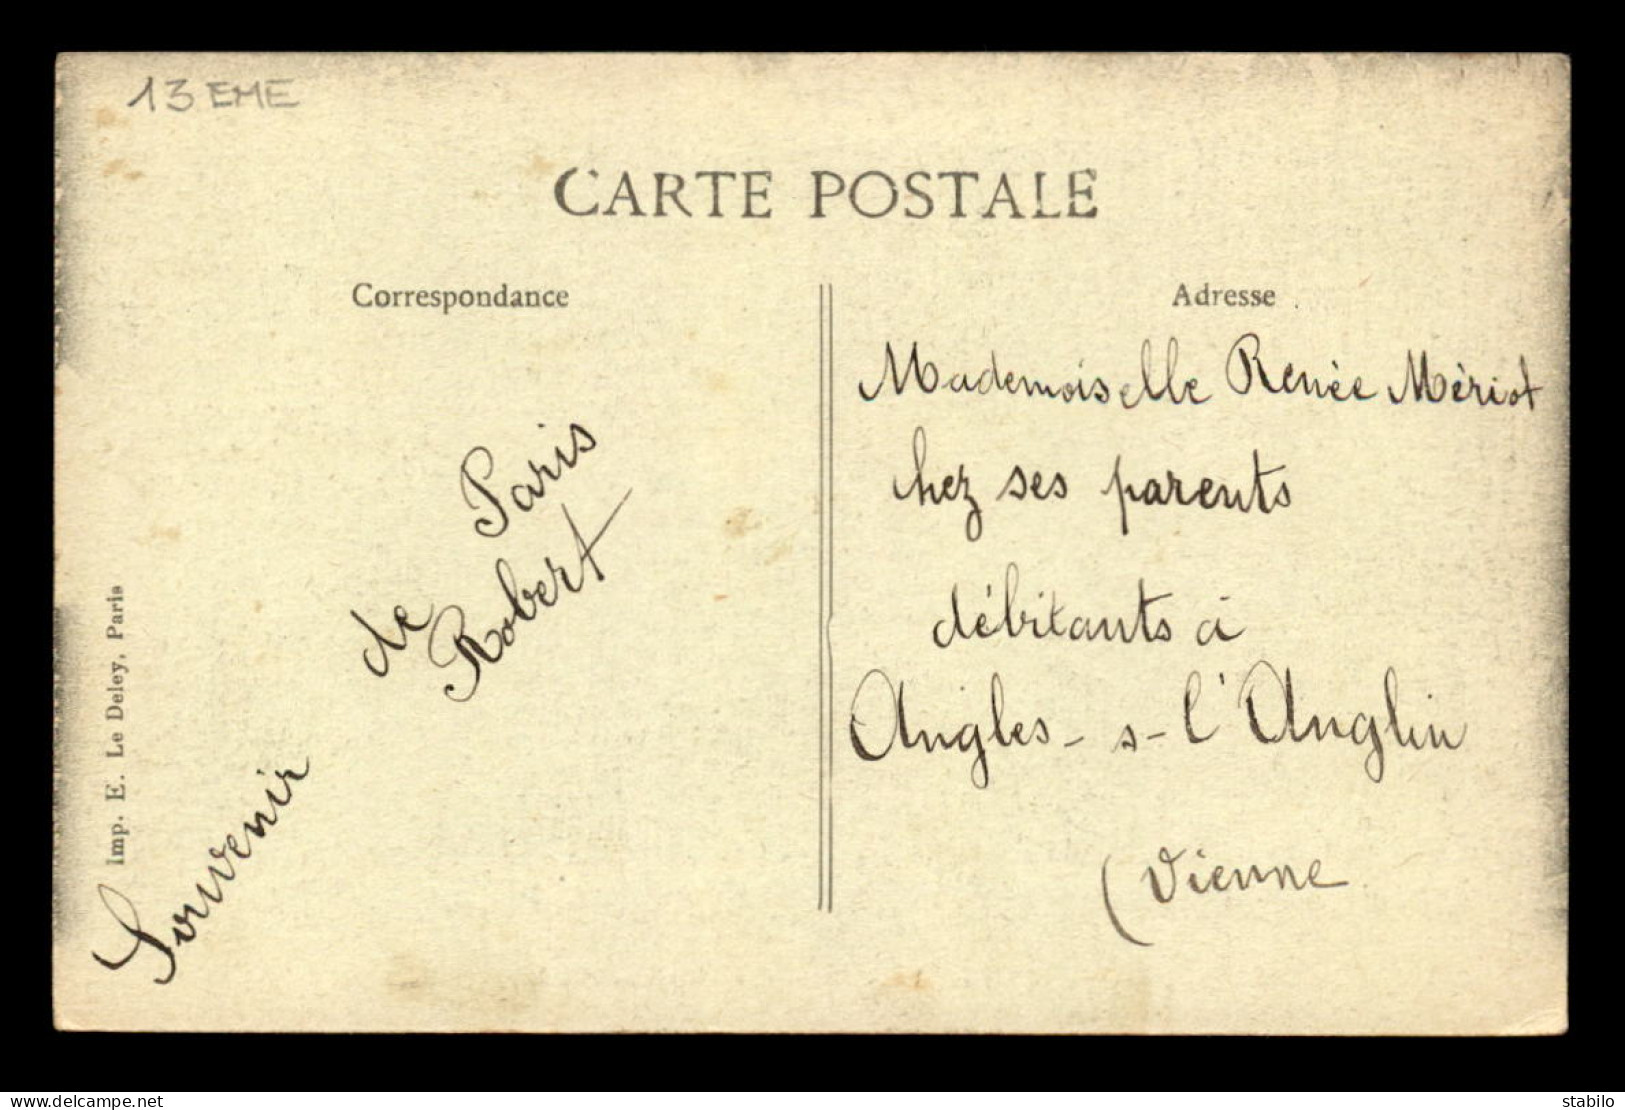 13 EME
CARTE POSTALE
Correspondance
Souvenir de Paris
Robert
Imp. E. Le Deley, Paris
Adresse
Mademoiselle Renée Mériot
chez ses parents
débitants à
Angles-s-l'Anglin
(Vienne
www.delcampe.net
stabilo